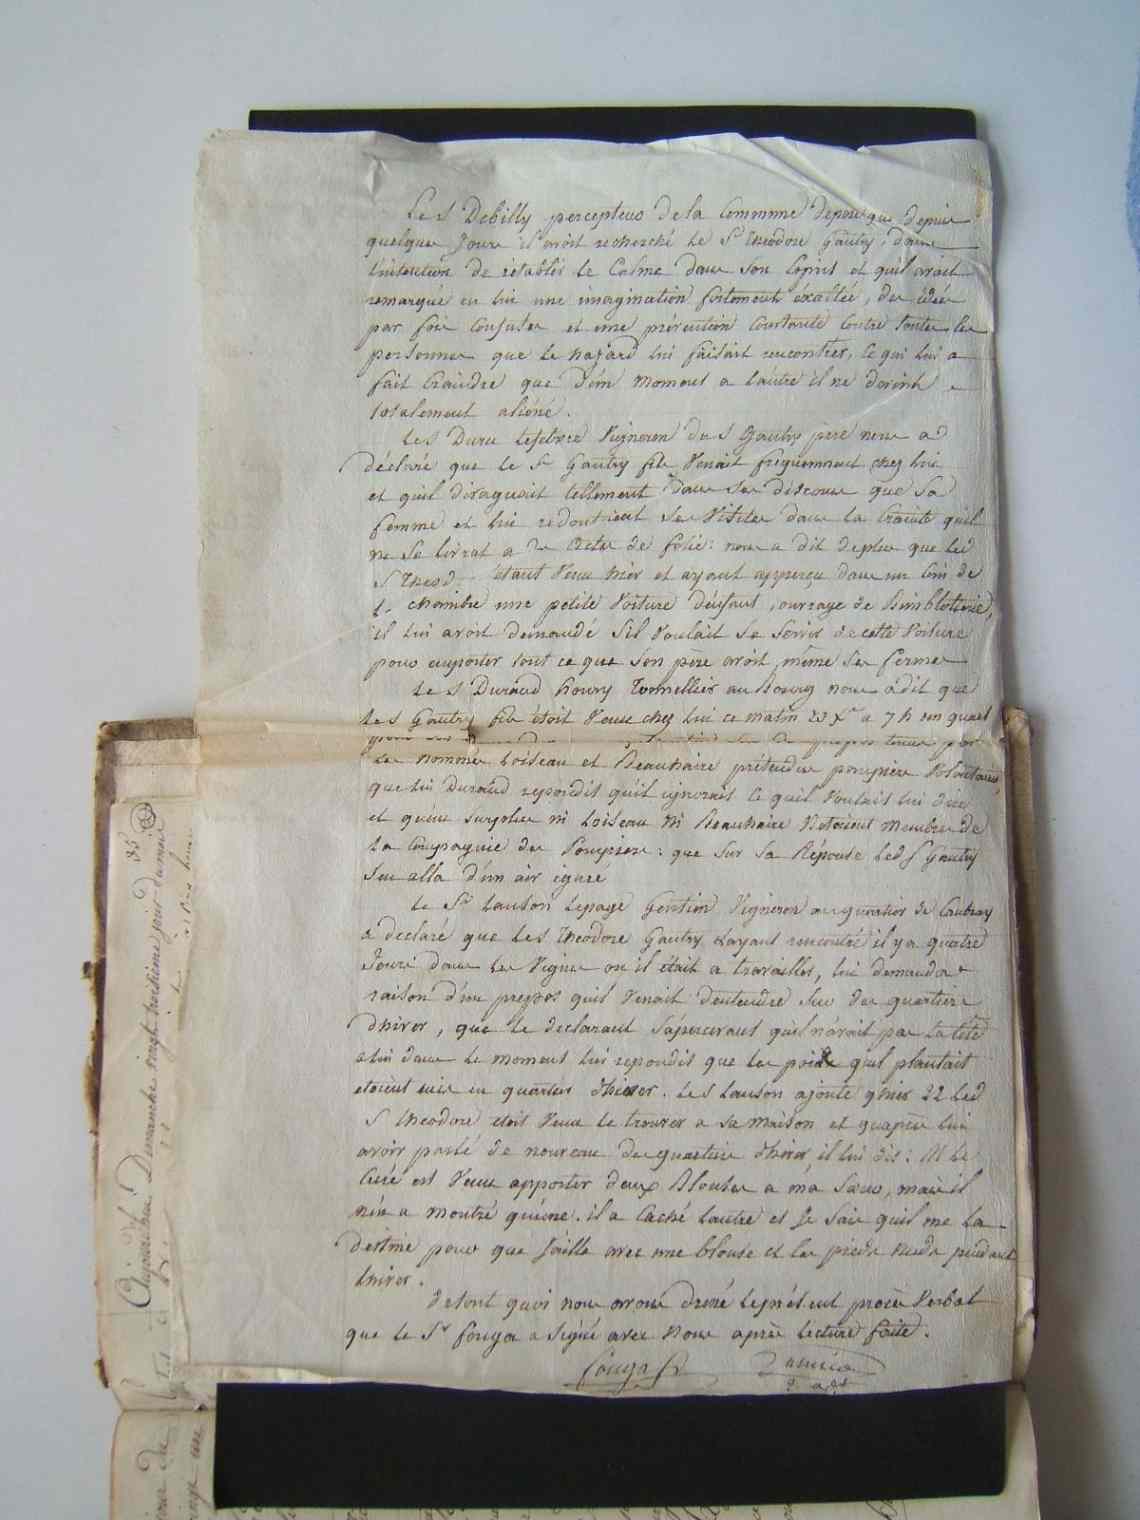 Le S Debilly percepteur de la Commune depose que depuis
quelques jours il avoit recherché le Sr theodore Gautry, dans
l'intention de retablir le Calme dans son Esprit et quil avait
remarqué en lui une imagination fortement éxaltée, des idées
par fois confuses et une prévention constante contre toutes les
personnes que le hazard lui faisait rencontrer, ce qui lui a
fait craindre que d'un moment a l'autre il ne devint
totalement aliéné.
Le S Duru Lefebvre Vigneron du S Gautry père nous a
déclaré que le Sr Gautry fils Venait frequemment chez lui
et quil divaguait tellement dans ses discours que sa
femme et lui redoutaient ses Visites dans la crainte quil
ne se livrat a des Actes de folie: nous a dit de plus que led
S theod. étant Venu hier et ayant apperçu dans un coin de
la chambre une petite Voiture d'enfant, ouvrage de Bimbloterie,
il lui avoit demandé s'il Voulait se servir de cette Voiture
pour emporter tout ce que son père avoit, même ses fermes
Le S Durand houry Tonnellier au Bourg nous a dit que
le S Gautry fils étoit Venu chez lui ce matin 23 Xre a 7 h un quart
propos tenus par
les nommés Loiseau et Beauhaire prétendus pompiers Volontaires,
que lui Durand repondit quil ignorait ce quil Voulait lui dire
et qu'au surplus ni Loiseau ni Beauhaire N'etoient membres de
la Compagnie des Pompiers: que sur sa Réponse led S Gautry
s'en alla d'un air égaré
Le Sr Lauson Lepage Gention Vigneron au quartier de Cautray
a declaré que le S theodore Gautry Layant rencontré il y a quatre
Jours dans les Vignes ou il était a travailler, lui demanda
raison d'un propos quil Venoit d'entendre sur des quartiers
d'hiver, que le declarant s'apercevant quil n'avait pas la tête
a lui dans le moment lui repondit que les pois quil plantait
etoient mis en quartier d'hiver. Le S Lauson ajoute qhier 22 led
S theodore etoit Venu le trouver a sa maison et qu'après lui
avoir parlé de nouveau de quartier d'hiver, il lui dit: M le
Curé est Venu apporter deux Blouses a ma Sœur, mais il
n'en a montré qu'une. il a caché l'autre et je sais quil me la
destine pour que j'aille avec une blouse et les pieds nuds pendant
l'hiver.
De tout quoi nous avons dressé le présent procès Verbal
que le Sr Fouga a signé avec nous après Lecture faite.
Fouga
85
Aujourd'hui Dimanche vingt troisième jour du mois